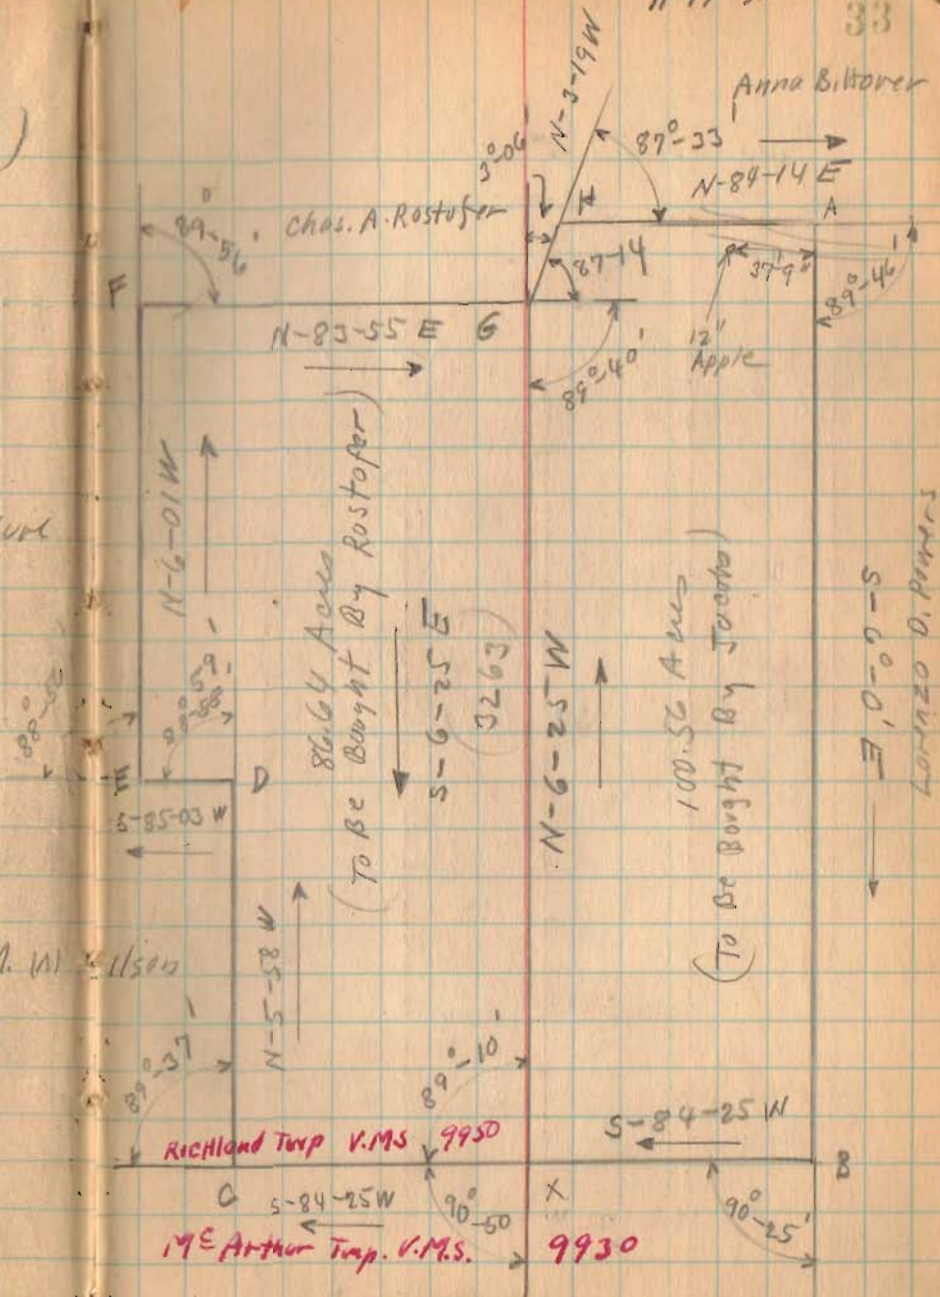 33
Anna Biltover
N-3-19W
87°-33'
N-84-14 E
A
3°-06
H
Chas. A. Rostofer
89°-56'
87-14
37'9"
89°-46'
F
N-83-55 E G
12"
Apple
89°-40'
N-6-01W
86.64 Acres
(To Be Bought By Rostofer)
S-6-25 E
(3263)
N-6-25 W
100.56 Acres
(To Be Bought By Jacobs)
S-6°-0' E
Lorenzo D. Powers
E
D
S-85-03 W
N-5-58 W
Wilson
89°-37'
89°-10'
S-84-25 W
Richland Twp V.M.S 9950
B
C
S-84-25W
90°-50
X
90°-25'
Mc Arthur Twp. V.M.S. 9930